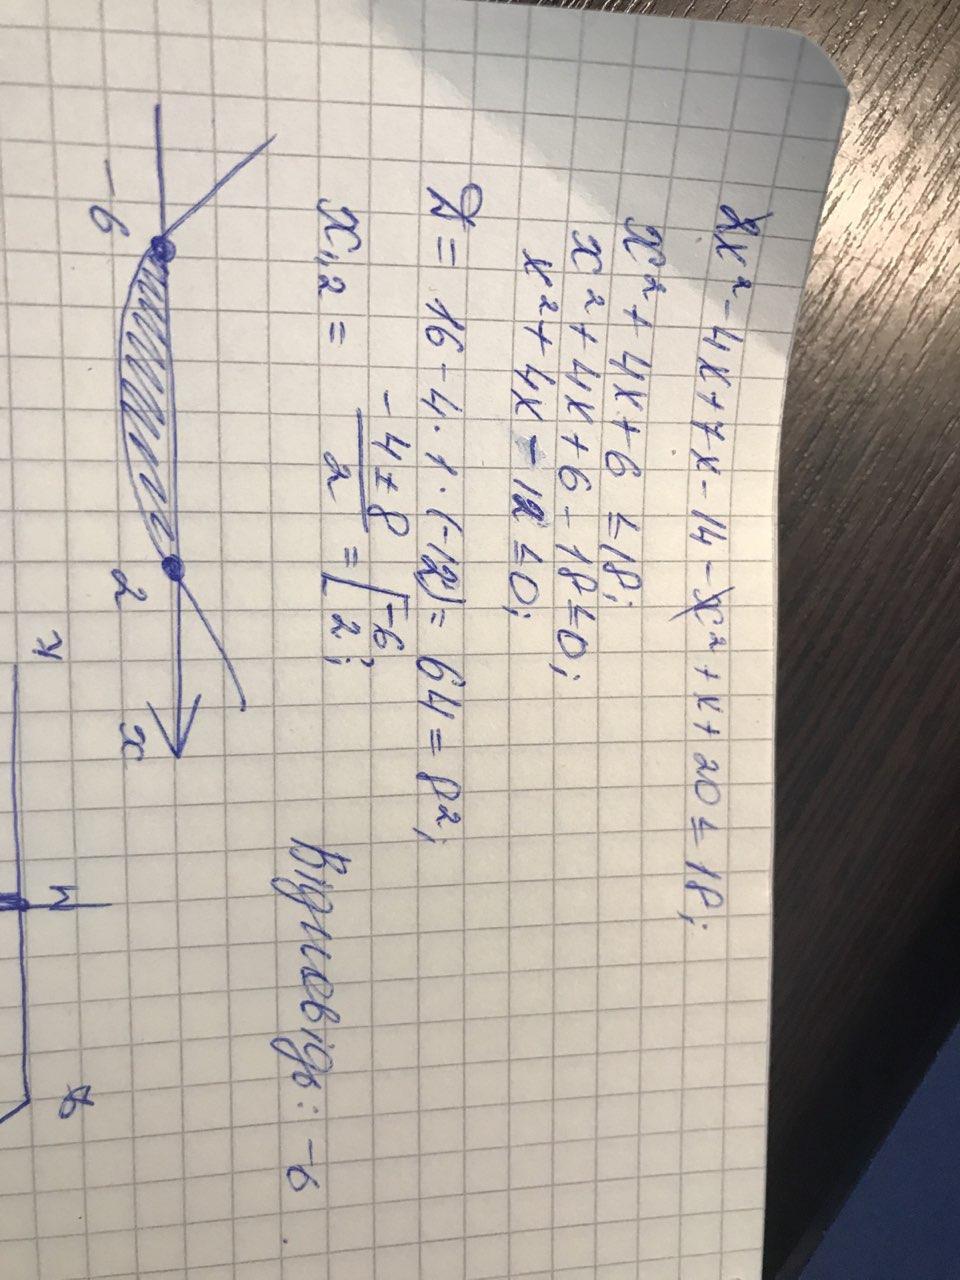 2x² - 4x + 7x - 14 - x² + x + 20 ≤ 18;
x² + 4x + 6 ≤ 18;
x² + 4x + 6 - 18 ≤ 0;
x² + 4x - 12 ≤ 0;
D = 16 - 4 · 1 · (-12) = 64 = 8²;
x₁,₂ = (-4 ± 8)/2 = [-6; 2;
-6 2 x
Відповідь: -6.
K M B